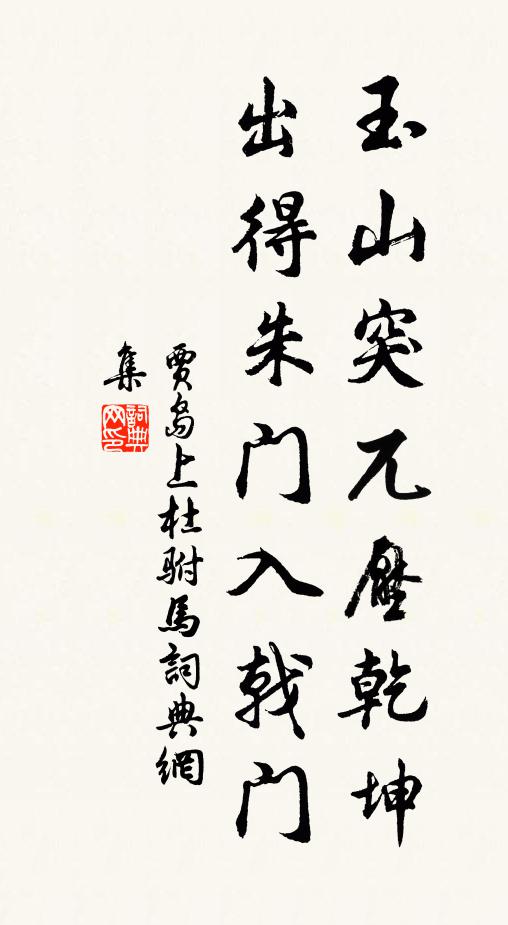 玉山突兀壓乾坤
出得朱門入戟門
賈島上杜駙馬詞典網
集
詞典
网印